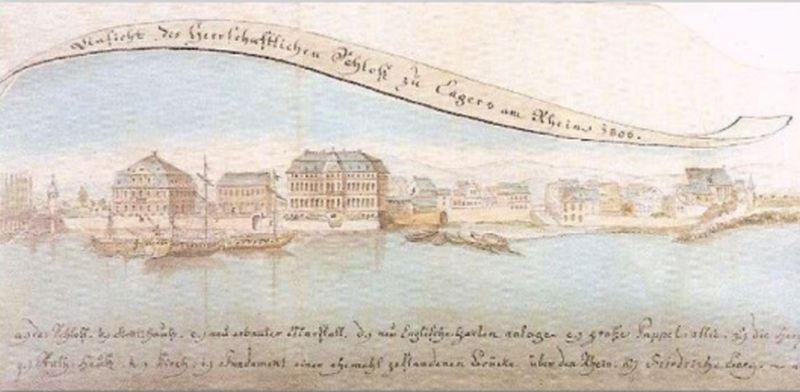 Ansicht des Herrschaftlichen Schloß zu Engers am Rhein 1806.
a, das Schloß. b, c, neu erbauter Marstall. d, neu Englische Garten anlage e, große Pappel allee. die
g, Rath Hauß h, Kirch, i, Fundament einer ehemahl gestandenen Brücke über den Rhein. Friedrichs